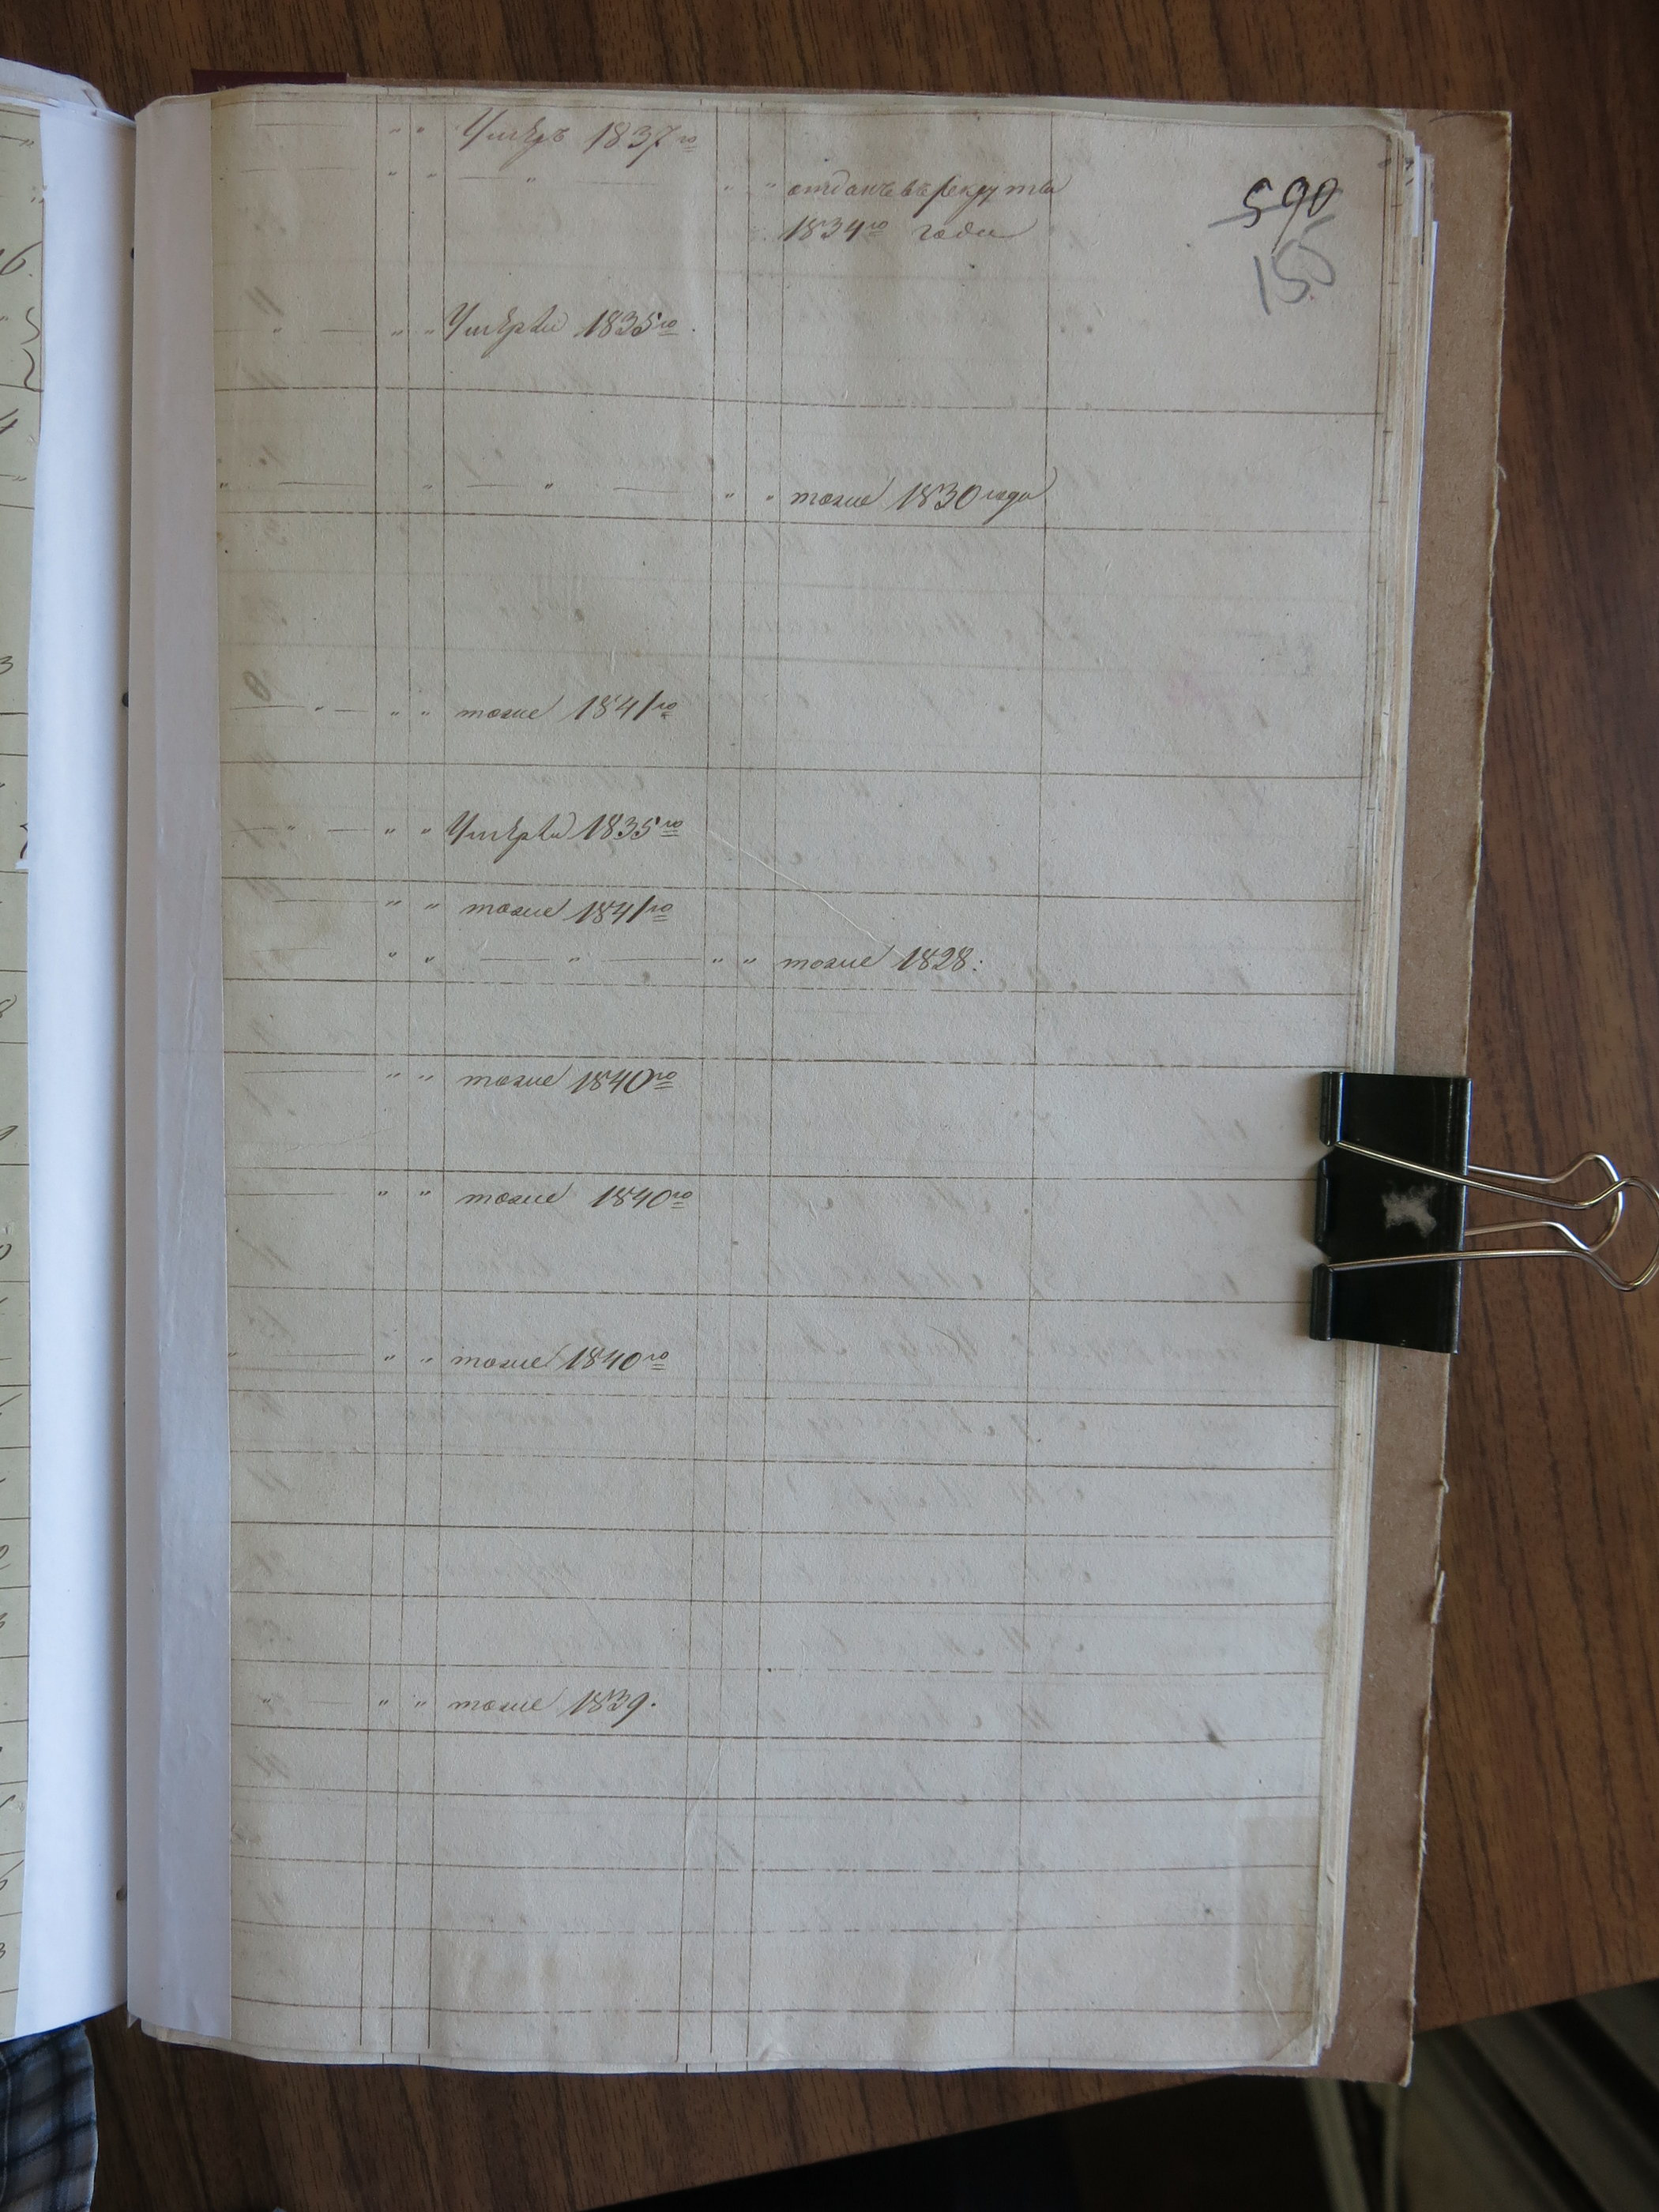 Умеръ 1837го
590
отданъ въ рекруты
1834го года
155
Умерли 1835го.
тоже 1830 года
тоже 1841го
Умерли 1835го
тоже 1841го
тоже 1828:
тоже 1840го
тоже 1840го
тоже 1840го
тоже 1839.